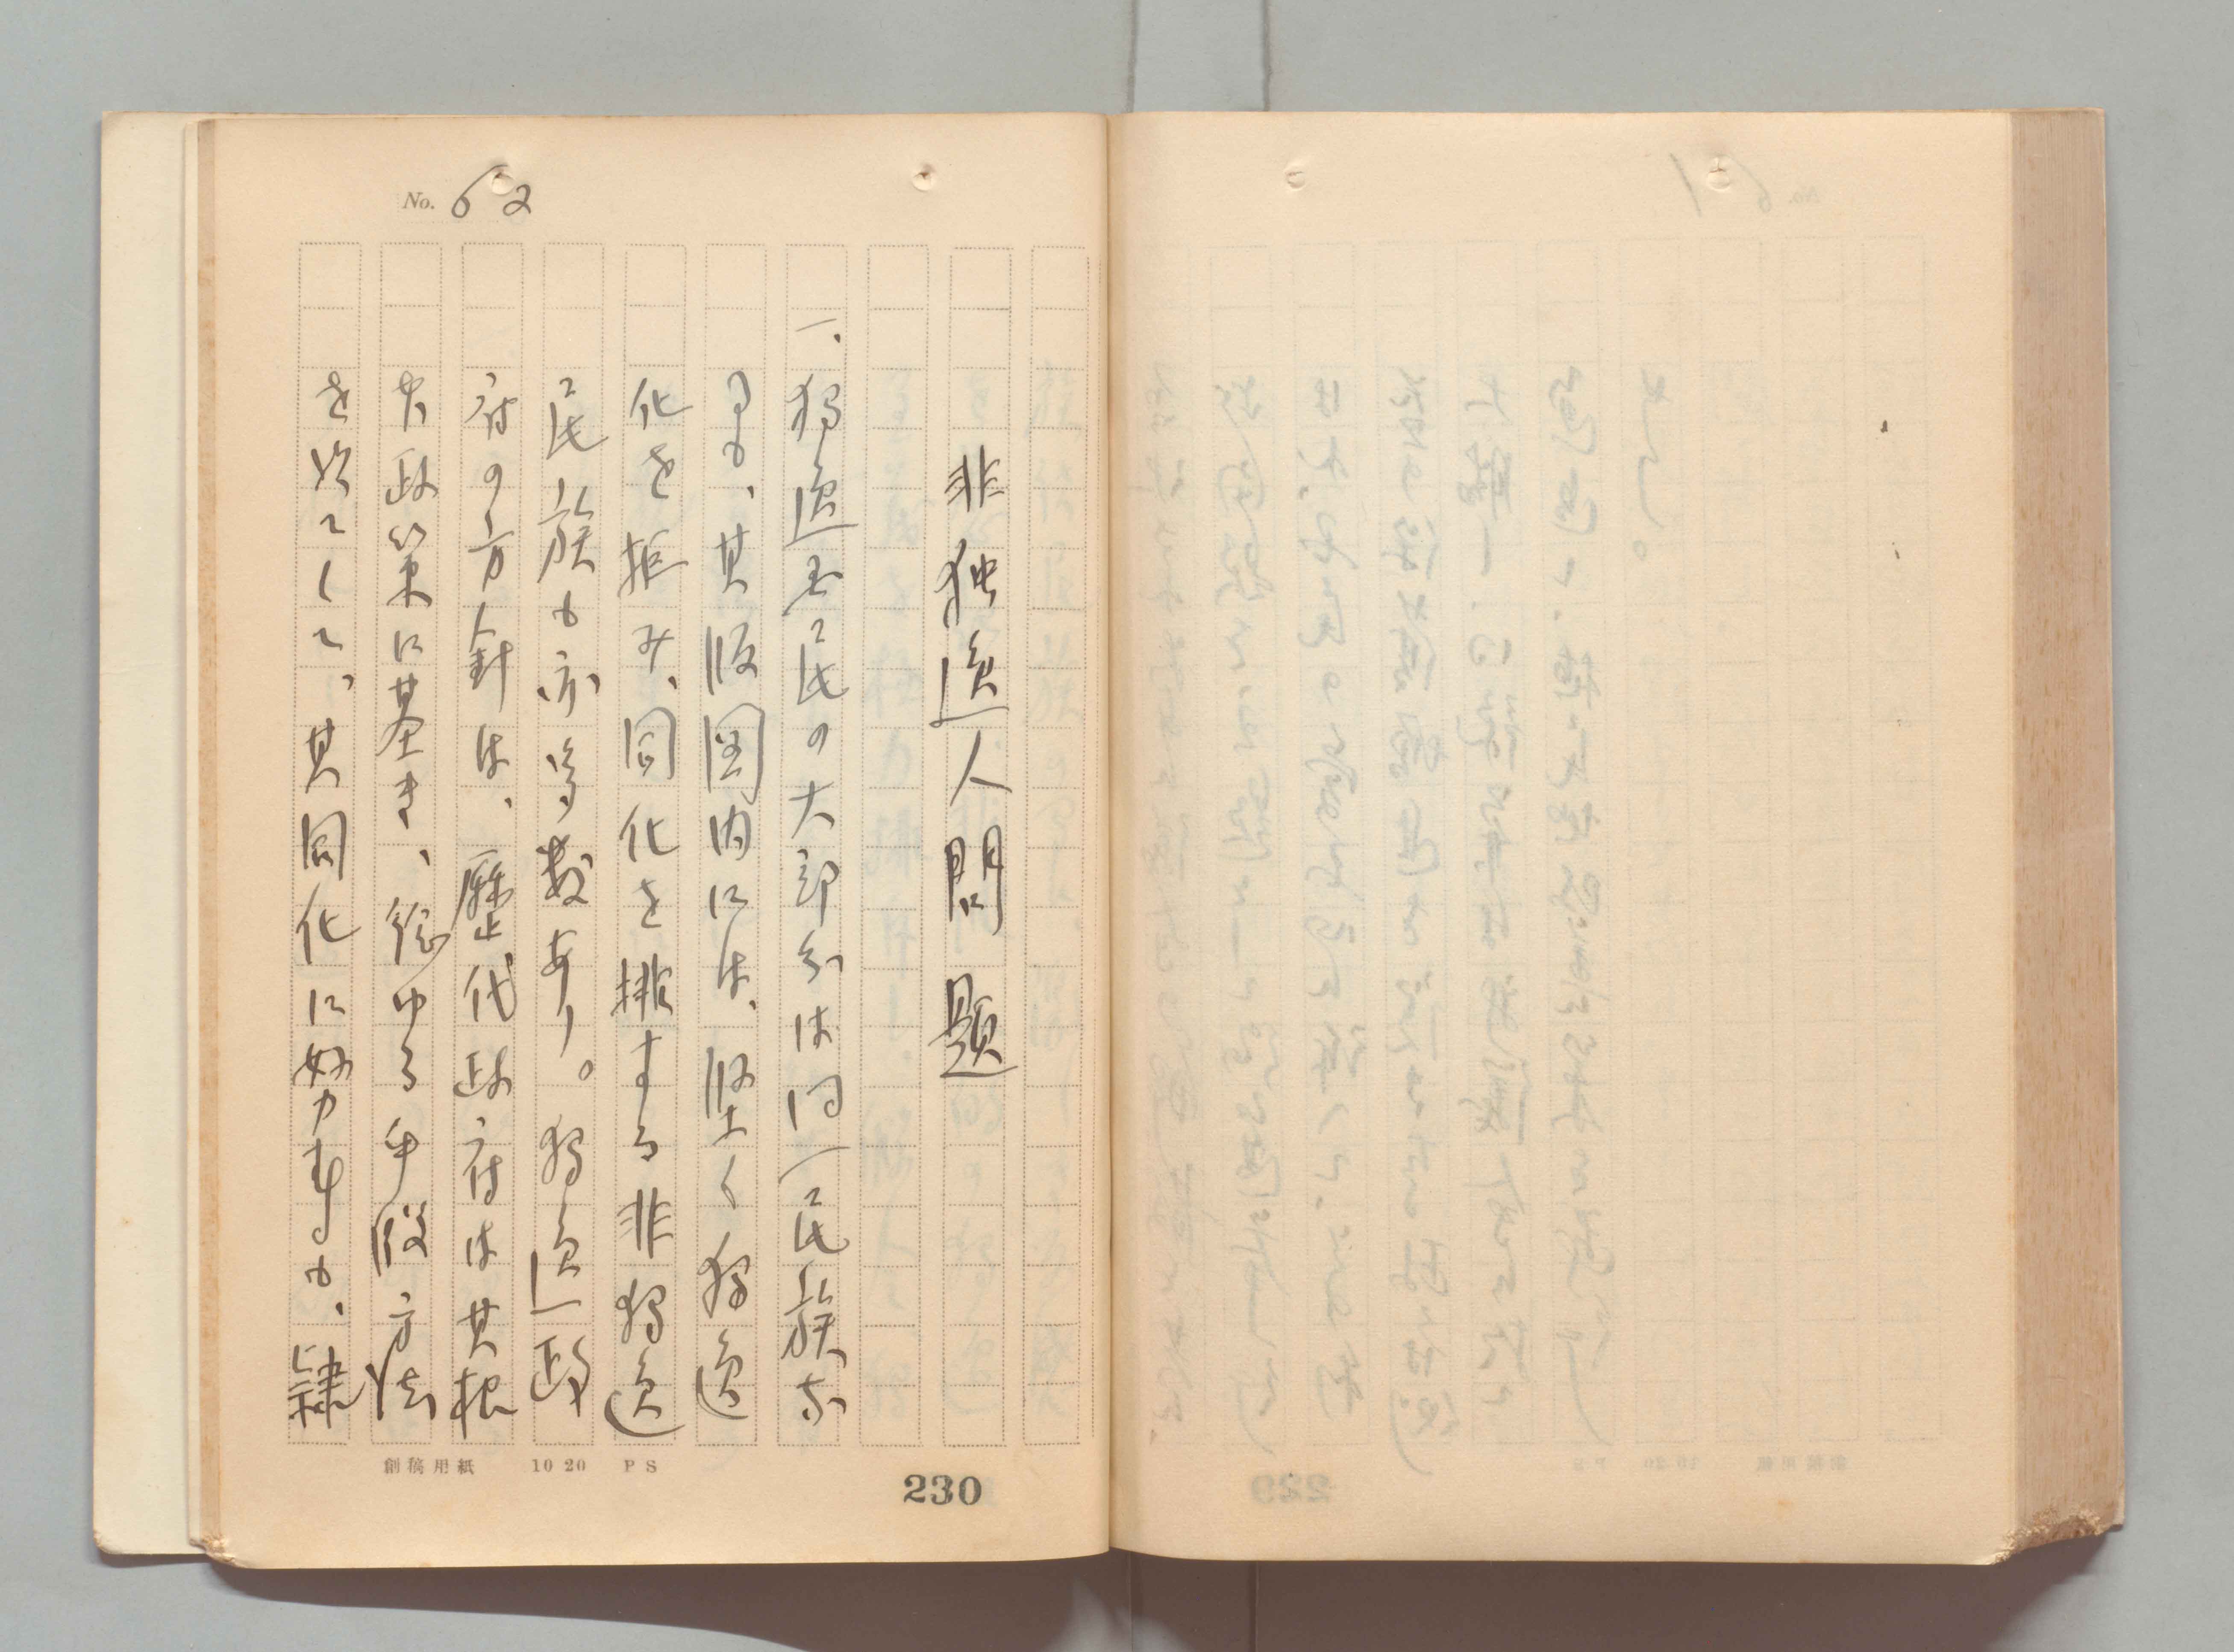 No. 62
非独逸人問題
一、独逸国民の大部分は同一民族な
るも、其版図内には、堅く独逸
化を拒み、同化を排する非独逸
民族も亦多数あり。独逸政
府の方針は、歴代政府は其根
本政策に基き、総ゆる手段方法
を以てして、其同化に努力するも、隷
創稿用紙 10 20 PS
230